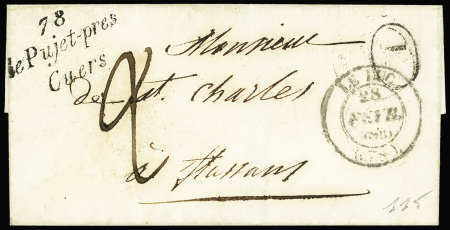 78
le Pujet-près
Cuers
Monsieur
de St. Charles
à Flassans
2
1
LE LUC
28
FEVR.
(78)
115